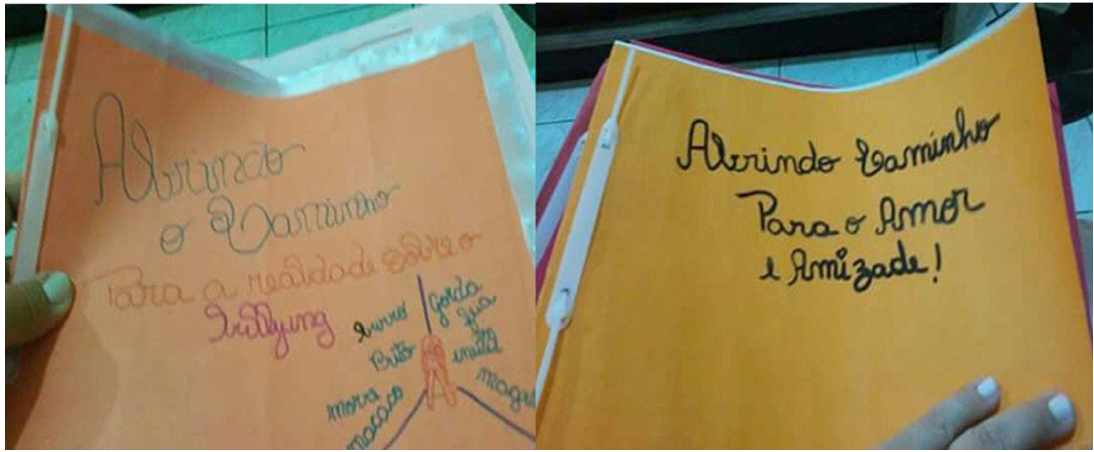 Abrindo
o Caminho
Para a realidade sobre o
Bullying
burro
Gorda
feia
macaco
Abrindo Caminho
Para o Amor
e Amizade!